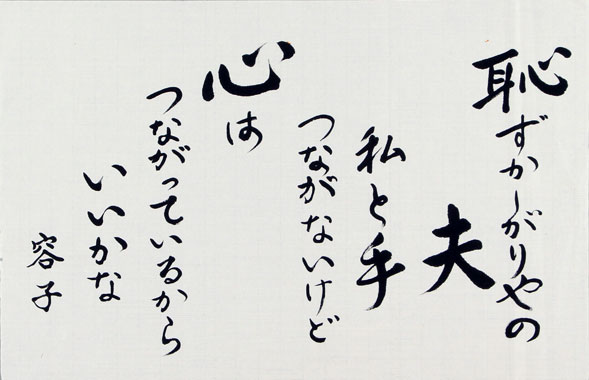 恥ずかしがりやの
夫
私と手
つながないけど
心は
つながっているから
いいかな
容子